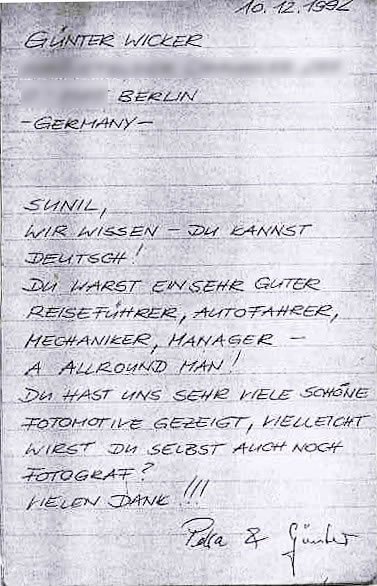 10.12.1992
GÜNTER WICKER
BERLIN
-GERMANY-
SUNIL,
WIR WISSEN - DU KANNST
DEUTSCH!
DU WARST EIN SEHR GUTER
REISEFÜHRER, AUTOFAHRER,
MECHANIKER, MANAGER -
A ALLROUND MAN!
DU HAST UNS SEHR VIELE SCHÖNE
FOTOMOTIVE GEZEIGT, VIELLEICHT
WIRST DU SELBST AUCH NOCH
FOTOGRAF?
VIELEN DANK!!!
Petra & Günter